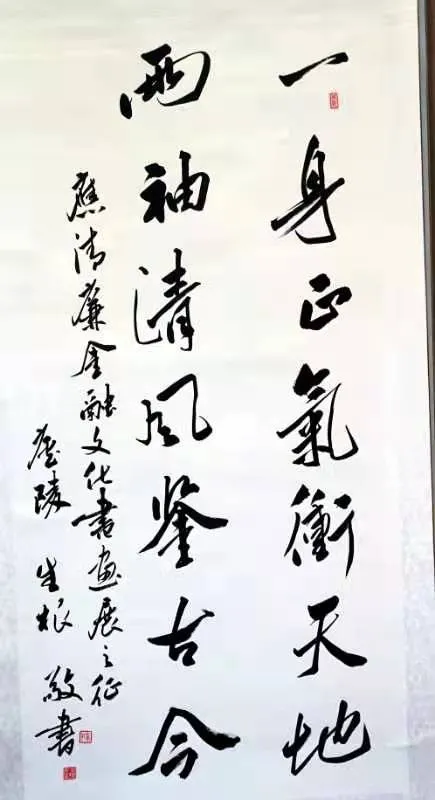 一身正氣衝天地
兩袖清風鉴古今
應清廉金融文化書畫展之征
廬陵 生根 敬書